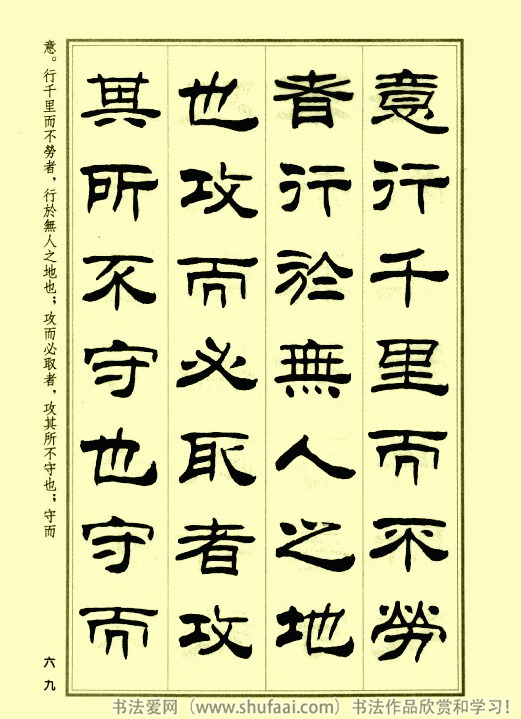 意行千里而不勞
者行於無人之地
也攻而必取者攻
其所不守也守而
意。行千里而不勞者，行於無人之地也；攻而必取者，攻其所不守也；守而
六九
书法爱网（www.shufaai.com）书法作品欣赏和学习！